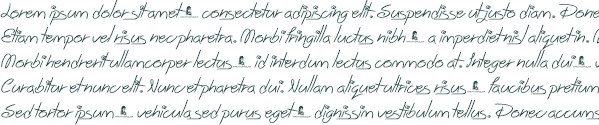 Lorem ipsum dolor sit amet, consectetur adipiscing elit. Suspendisse ut justo diam. Done
Etiam tempor vel risus nec pharetra. Morbi fringilla luctus nibh, a imperdiet nisl aliquet in. 
Morbi hendrerit ullamcorper lectus, id interdum lectus commodo at. Integer nulla dui,
Curabitur et nunc elit. Nunc et pharetra dui. Nullam aliquet ultrices risus, faucibus pretium
Sed tortor ipsum, vehicula sed purus eget, dignissim vestibulum tellus. Donec accums